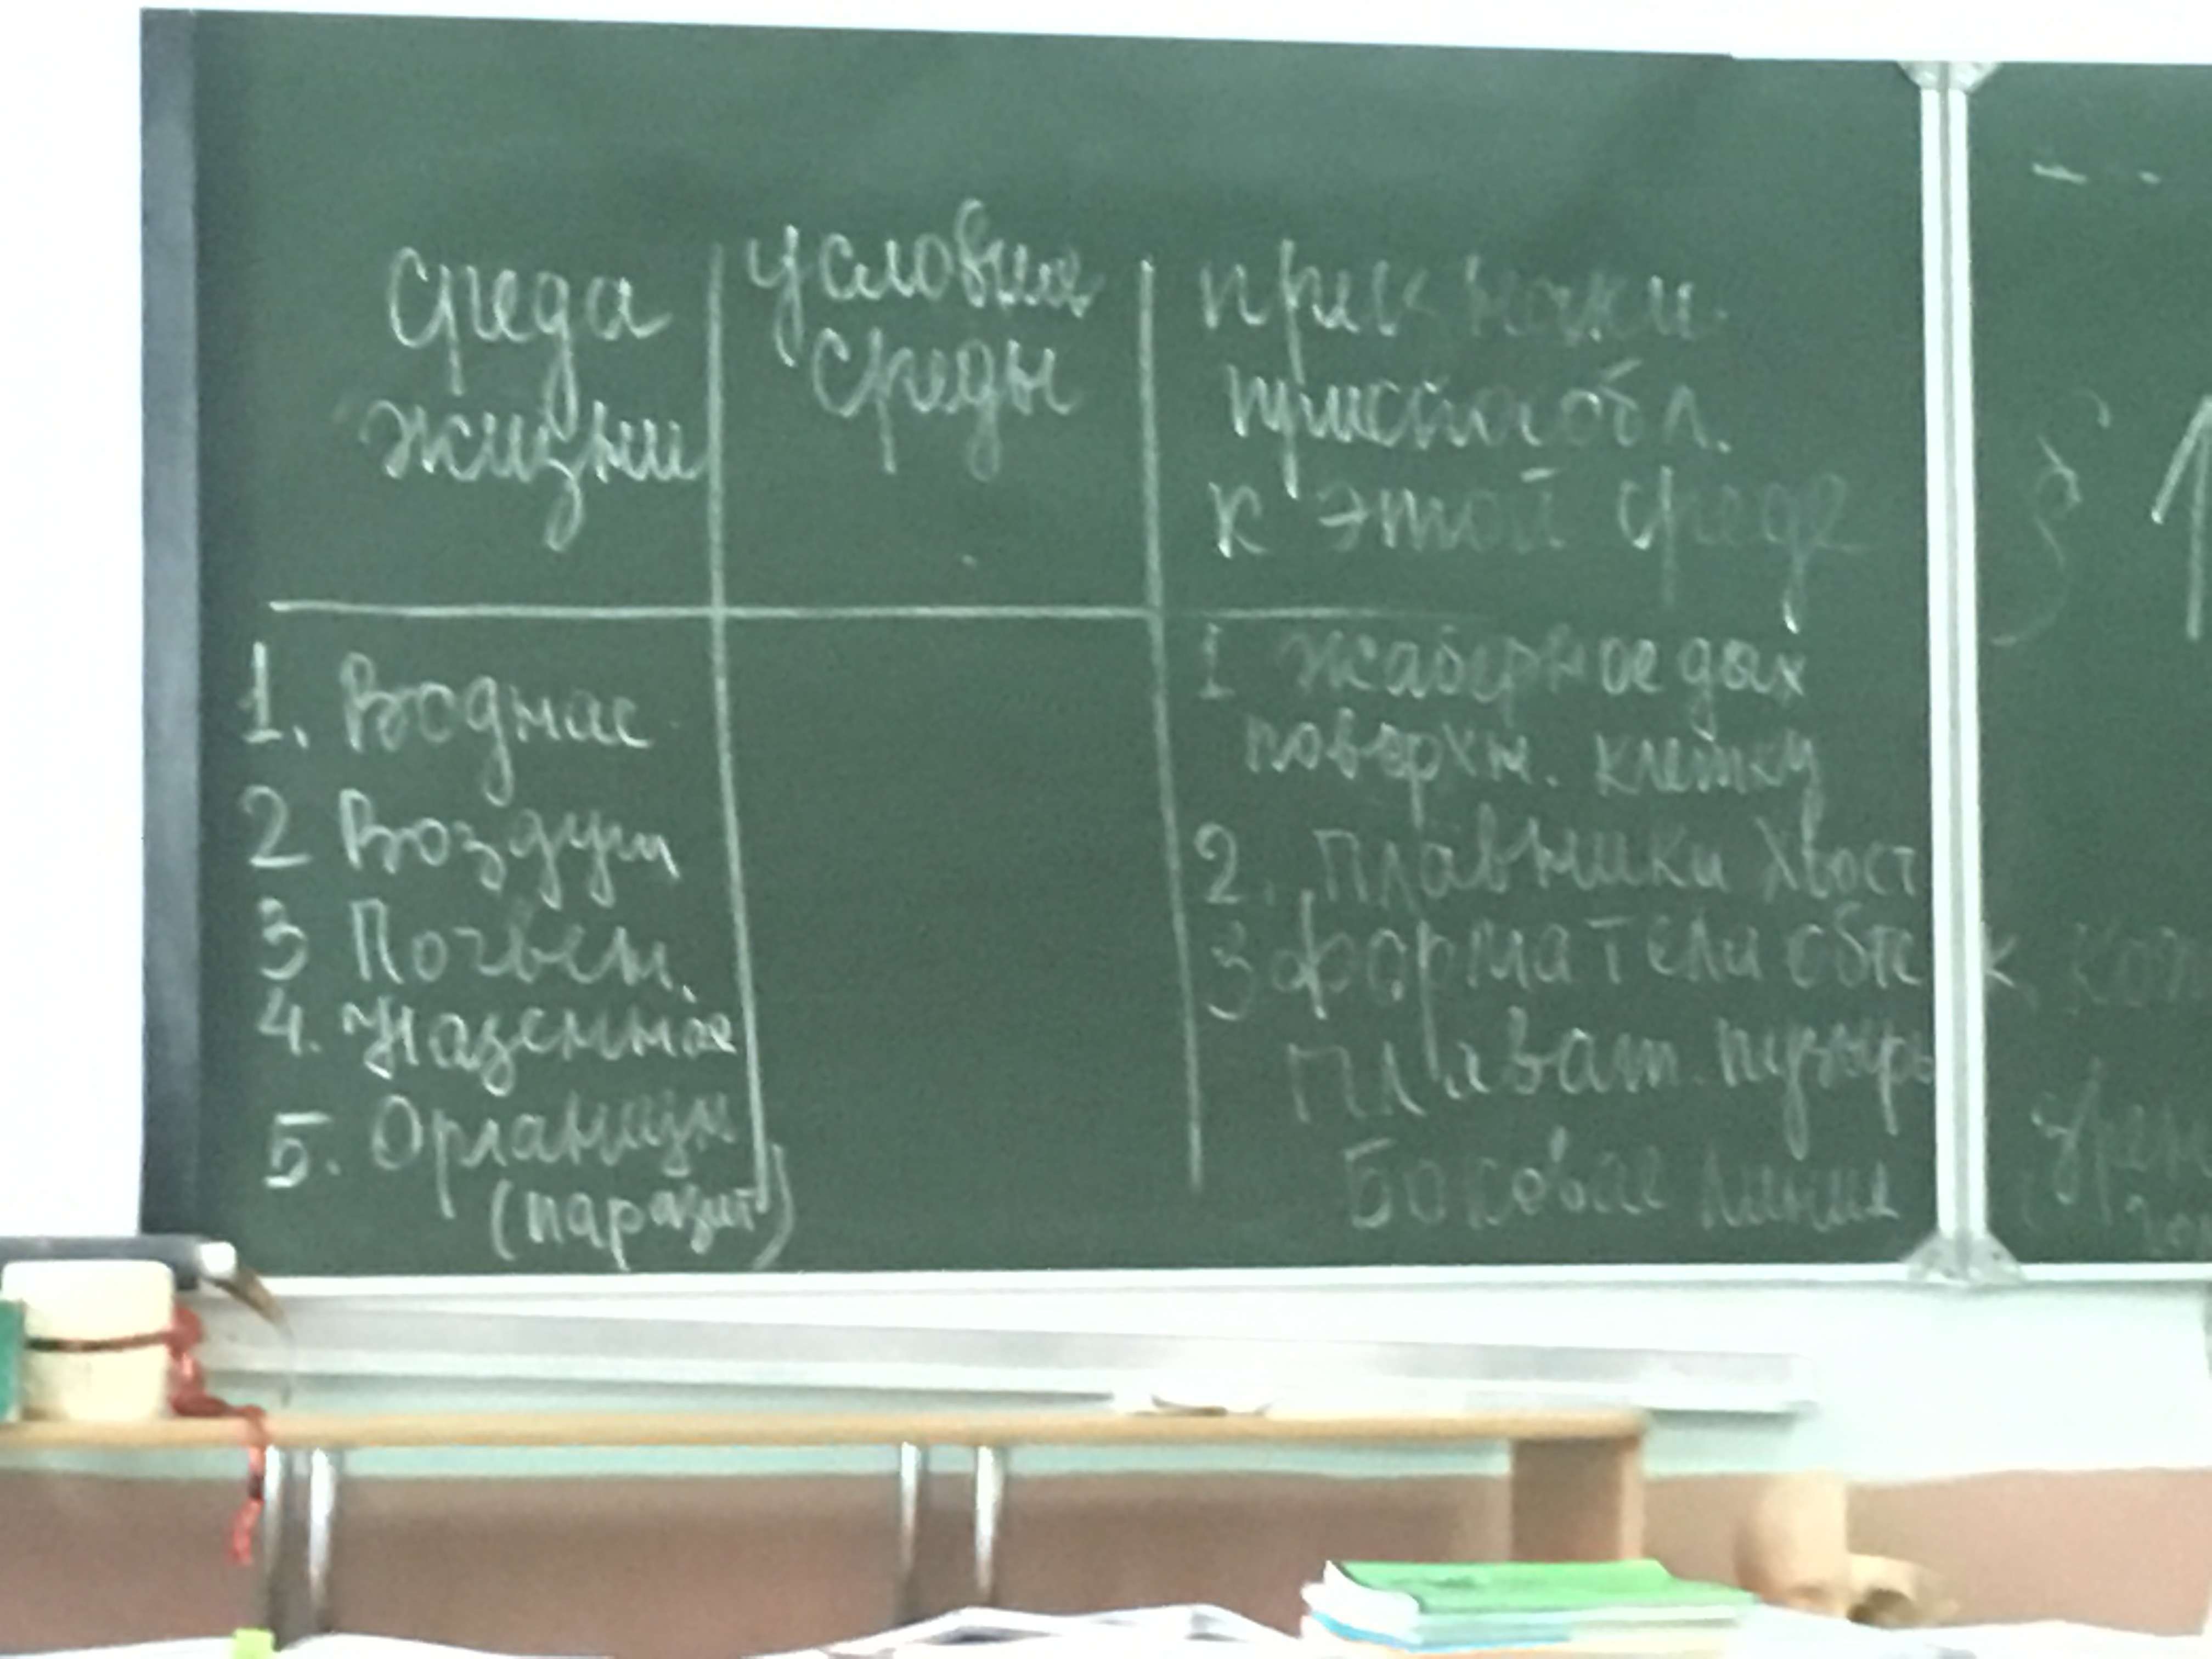 среда
жизни
условия
среды
признаки
приспособл.
к этой среде
1. Водная
2 Воздуш
3 Почвен.
4. Наземная
5. Организм
(паразит)
1 жаберное дых
поверхн. клетку
2. плавники хвост
3 форма тела обтек
плават. пузырь
Боковая линия